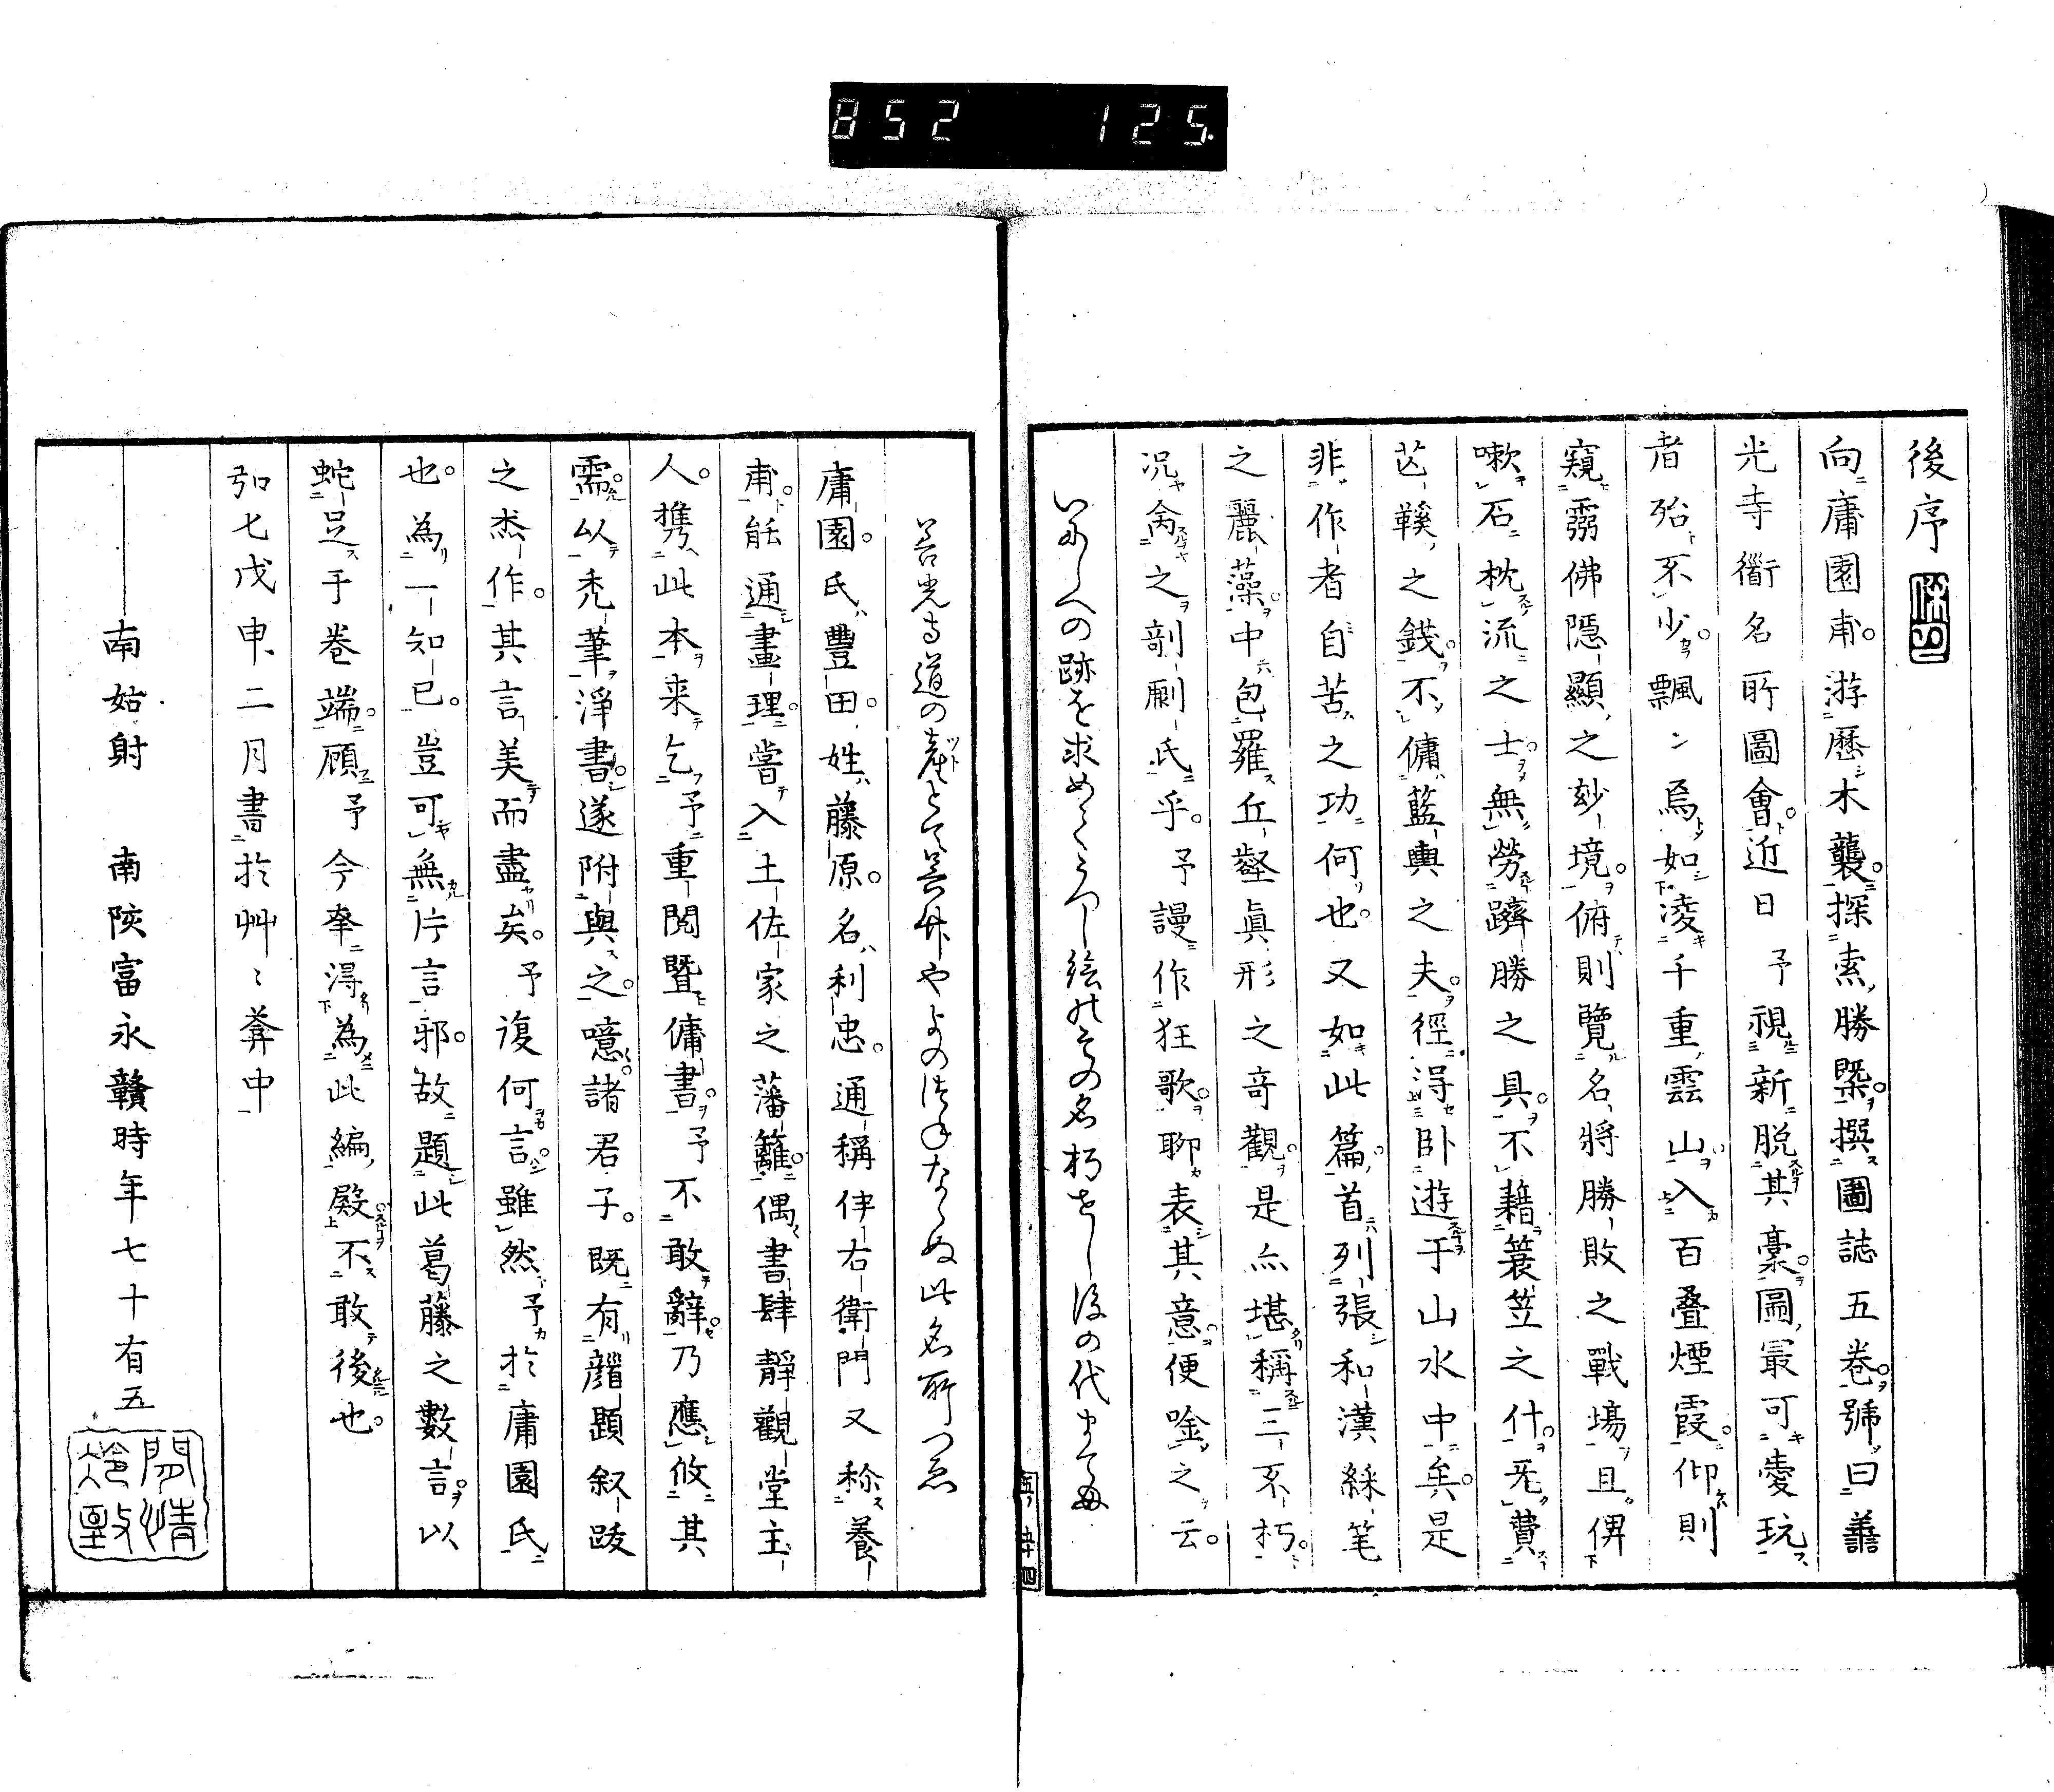 852 125.
後序
向庸園甫游歴木襲探索勝槩撰圖誌五巻號曰善
光寺衟名所圖會近日予視新脱其稾圖最可愛玩
者殆不少飄々焉如凌千重雲山入百疊煙霞仰則
窺霛佛隠顯之玅境俯則覽名將勝敗之戰場且俾
嗽石枕流之士無勞躋勝之具不藉蓑笠之什旡費
芒鞵之錢不傭藍輿之夫徑淂卧遊于山水中矣是
非作者自苦之功何也又如此篇首列張和漢綵笔
之麗藻中包羅丘壑真形之竒觀是亦堪稱三不朽
况禽之剞劂氏乎予謾作狂歌聊表其意便唫之云
いにしへの跡を求めてうつし絵のその名朽せし後の代まても
善光寺道の産とて善哉やよのつねならぬ此名所つゑ
庸園氏豐田姓藤原名利忠通稱伴右衛門又称養
甫能通畫理嘗入土佐家之藩籬偶書肆靜觀堂主
人携此本来乞予重閲曁傭書予不敢辭乃應攸其
需以禿筆淨書遂附與之噫諸君子既有謡題叙跋
之杰作其言美而盡矣予復何言雖然予於庸園氏
也為一知已豈可無片言邪故題此葛藤之數言以
蛇足于巻端顧予今幸淂為此編殿不敢後也
弘七戊申二月書於艸々葊中
南姑射 南陔富永贛時年七十有五